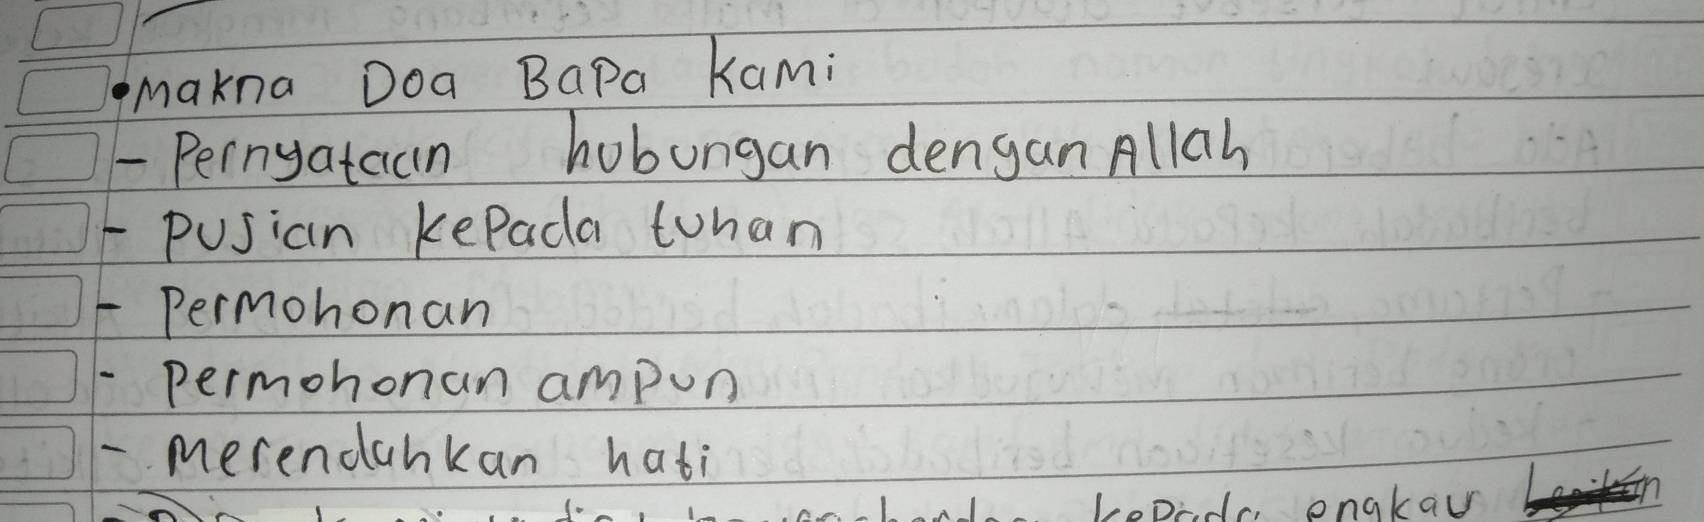 • Makna Doa Bapa Kami
- Pernyataan hubungan dengan Allah
- Pusian kepada tuhan
- Permohonan
- Permohonan ampun
- Merendahkan hati
kepada engkau